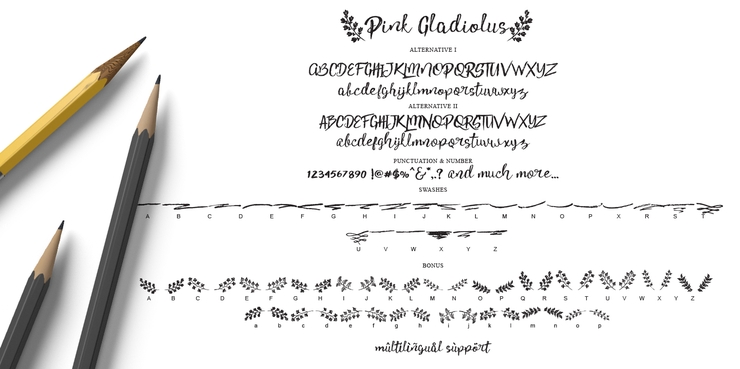 Pink Gladiolus
ALTERNATIVE I
ABCDEFGHIJKLMNOPQRSTUVWXYZ
abcdefghijklmnopqrstuvwxyz
ALTERNATIVE II
ABCDEFGHIJKLMNOPQRSTUVWXYZ
abcdefghijklmnopqrstuvwxyz
PUNCTUATION & NUMBER
1234567890 !@#$%^&*,.? and much more...
SWASHES
A B C D E F G H I J K L M N O P X R S T
U V W X Y Z
BONUS
A B C D E F G H I J K L M N O P Q R S T U V W X Y Z
a b c d e f g h i j k l m n o p
múltilinguál sùppórt